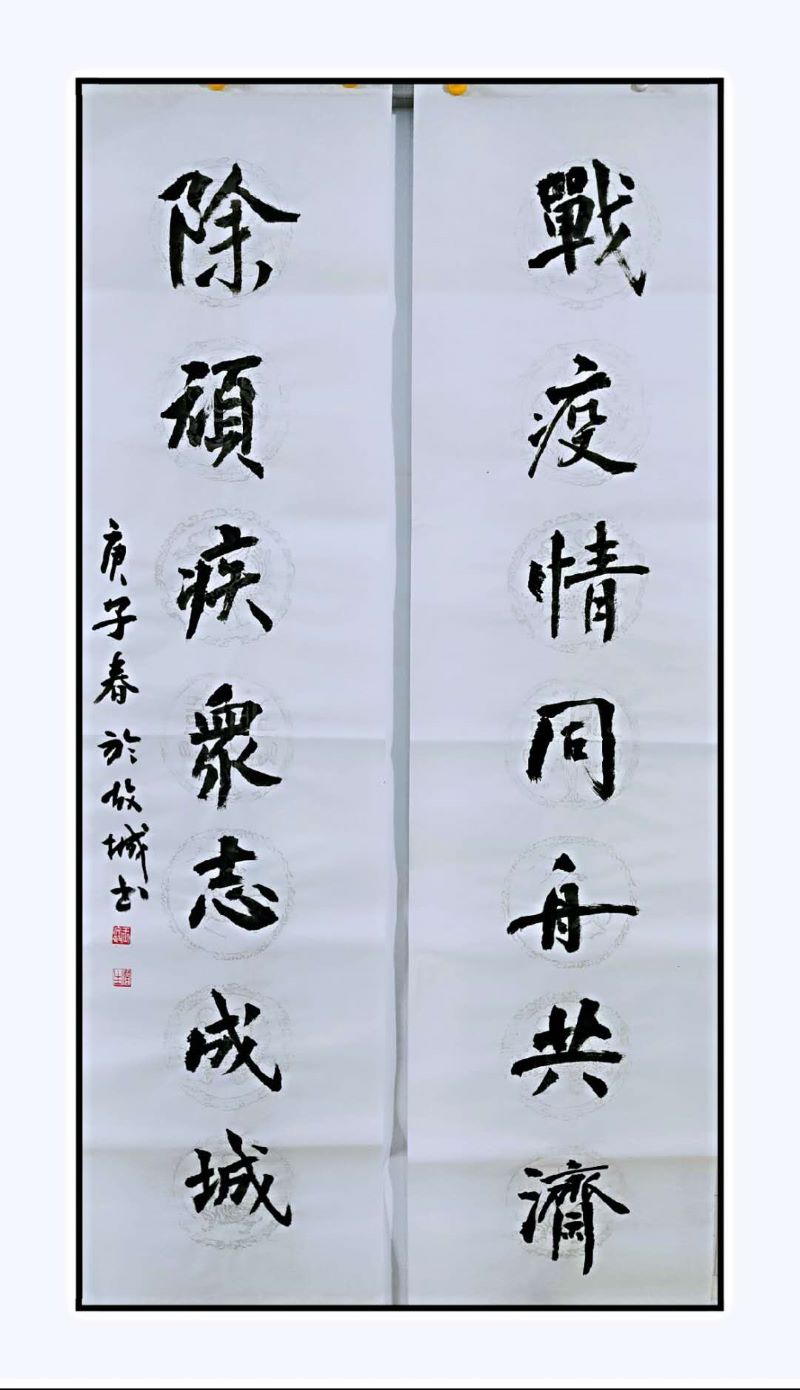 戰疫情同舟共濟
除頑疾衆志成城
庚子春於故城書